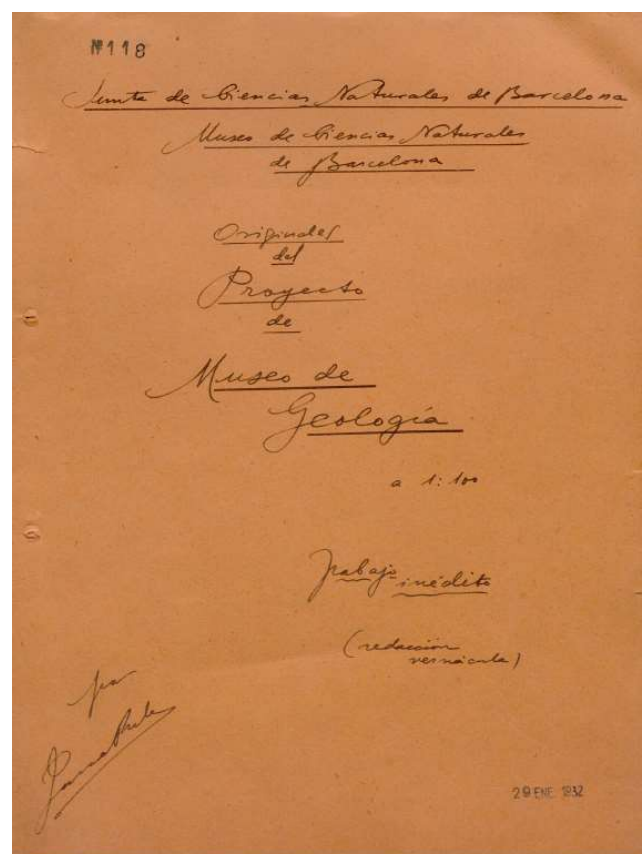 Nº 118
Junta de Ciencias Naturales de Barcelona
Museo de Ciencias Naturales
de Barcelona
Originales
del
Proyecto
de
Museo de
Geología
a 1:100
Trabajo
inédito
(redacción
vernácula)
por
29 ENE 1932